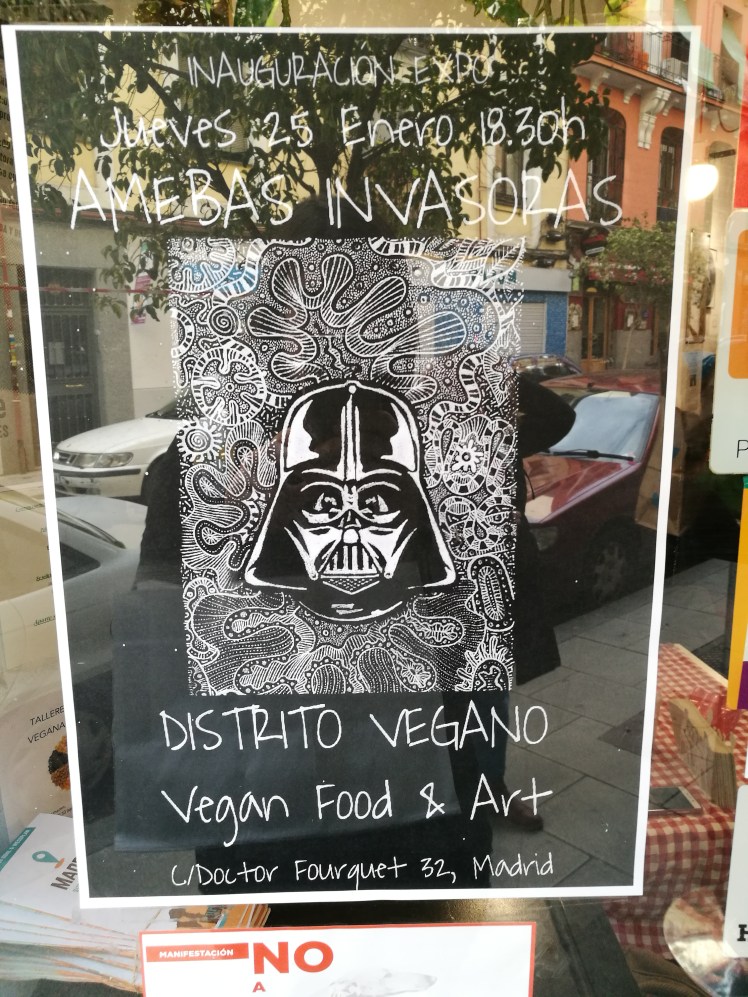 INAUGURACION EXPO
Jueves 25 Enero 18.30h
AMEBAS INVASORAS
DISTRITO VEGANO
Vegan Food & Art
C/Doctor Fourquet 32, Madrid
MANIFESTACIÓN
NO
A